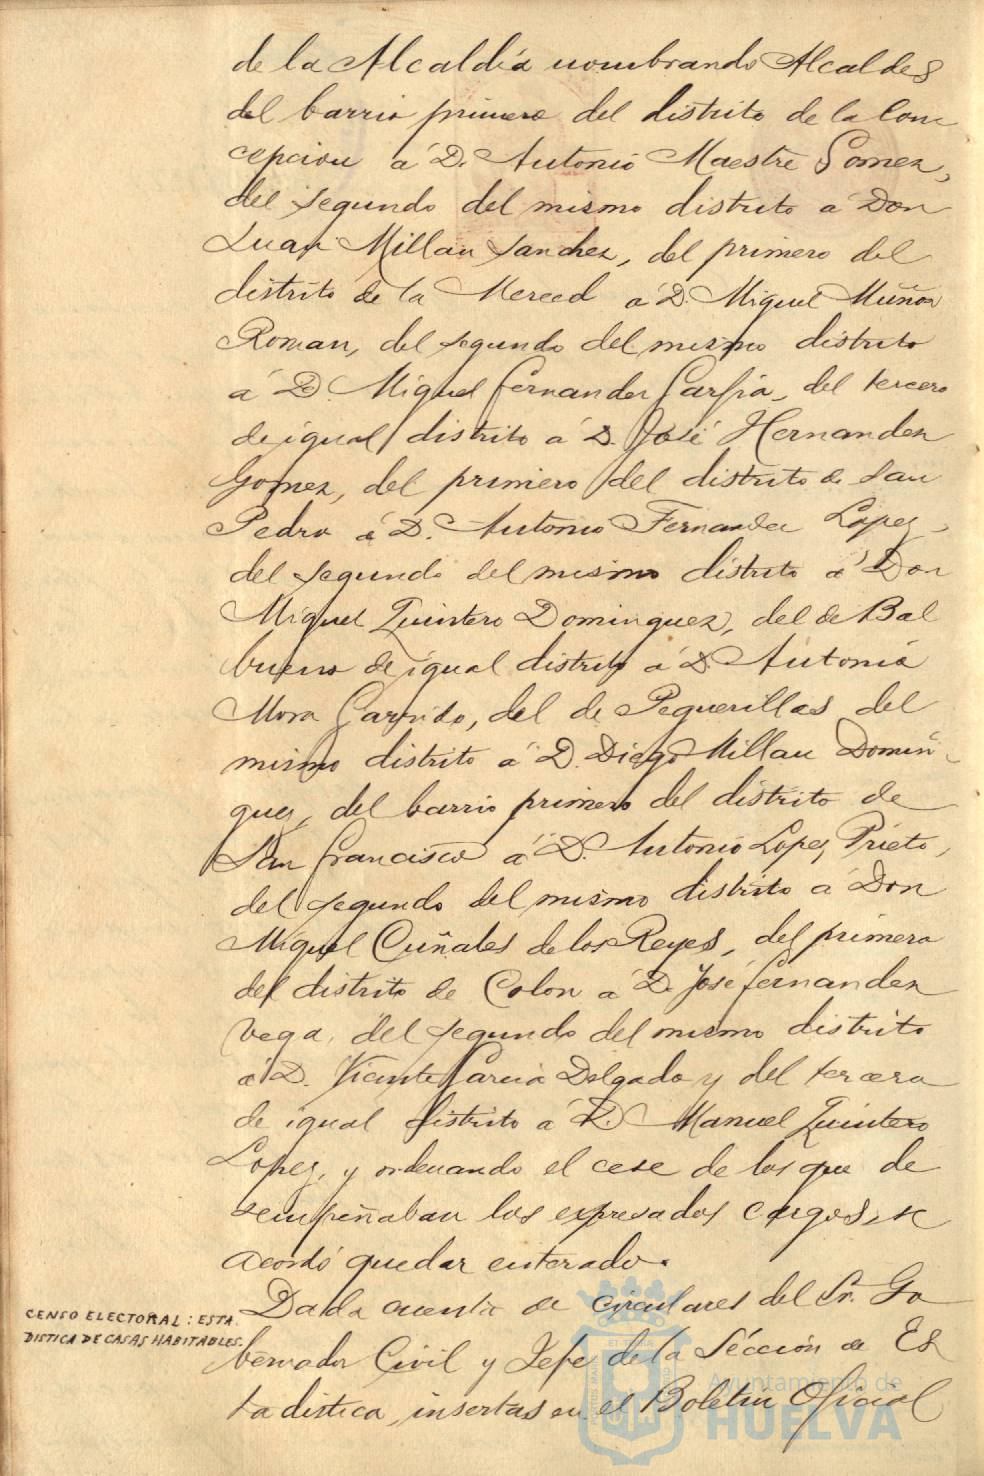 de la Alcaldía nombrando Alcaldes
del barrio primero del distrito de la Con
cepcion á D. Antonio Maestre Gomez,
del segundo del mismo distrito a Don
Juan Millan Sanchez, del primero del
distrito de la Merced á D. Miguel Muñoz
Roman, del segundo del mismo distrito
á D. Miguel Fernandez Garfia, del tercero
de igual distrito á D. José Hernandez
Gomez, del primero del distrito de San
Pedro á D. Antonio Fernandez Lopez,
del segundo del mismo distrito á Don
Miguel Quintero Dominguez, del de Bal
bueno de igual distrito á D. Antonio
Mora Garrido, del de Peguerillas del
mismo distrito á D. Diego Millan Domin-
guez, del barrio primero del distrito de
San Francisco á D. Antonio Lopez Prieto,
del segundo del mismo distrito á Don
Miguel Cuñales de los Reyes, del primero
del distrito de Colon á D. José Fernandez
Vega, del segundo del mismo distrito
á D. Vicente Garcia Delgado y del tercero
de igual distrito á D. Manuel Quintero
Lopez, y ordenando el cese de los que de
sempeñaban los expresados cargos, se
acordó quedar enterado.
CENSO ELECTORAL: ESTA
DISTICA DE CASAS HABITABLES.
Dada cuenta de circulares del Sr. Go
bernador Civil y Jefe de la Sección de Es
tadistica, insertas en el Boletin Oficial
Ayuntamiento de
HUELVA